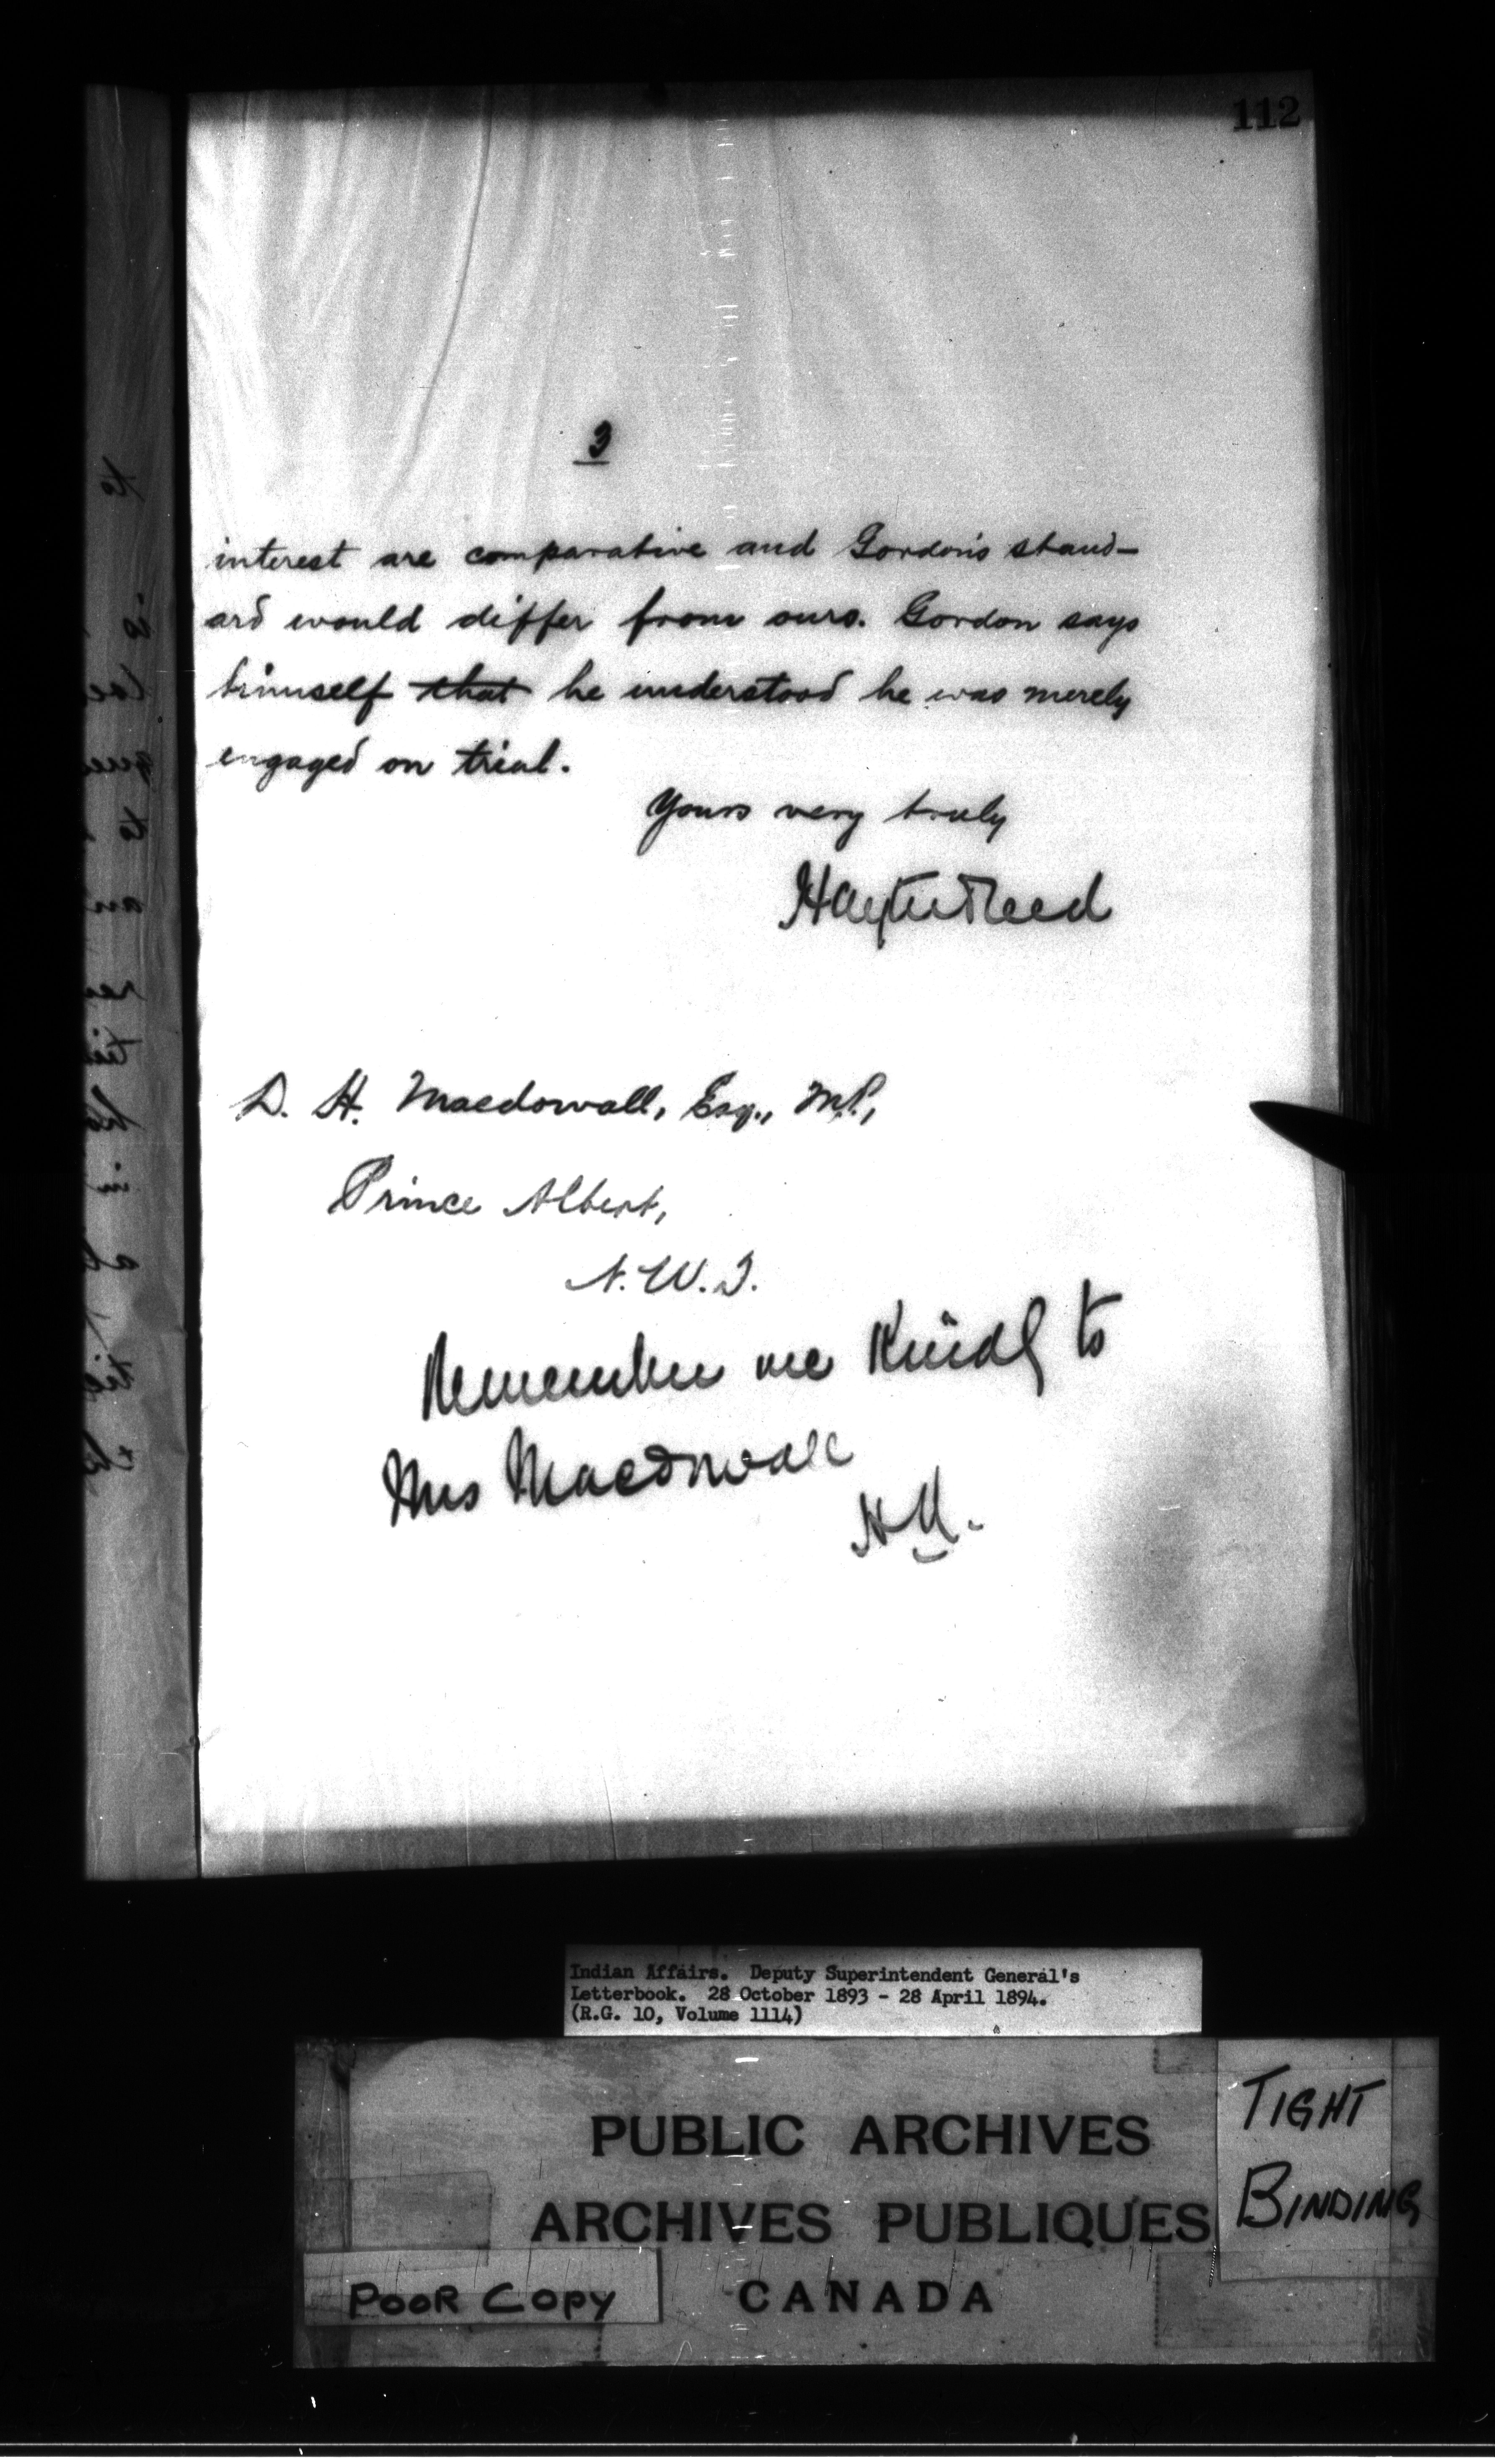 112
3
interest are comparative and Gordon's stand-
ard would differ from ours. Gordon says
himself that he understood he was merely
engaged on trial.
Yours very truly
Hayter Reed
D. H. Macdowall, Esq., M.P.,
Prince Albert,
N.W.T.
Remember me Kindly to
Mrs Macdowall
H.R.
Indian Affairs. Deputy Superintendent General's
Letterbook. 28 October 1893 - 28 April 1894.
(R.G. 10, Volume 1114)
TIGHT
BINDING
PUBLIC ARCHIVES
ARCHIVES PUBLIQUES
CANADA
POOR COPY